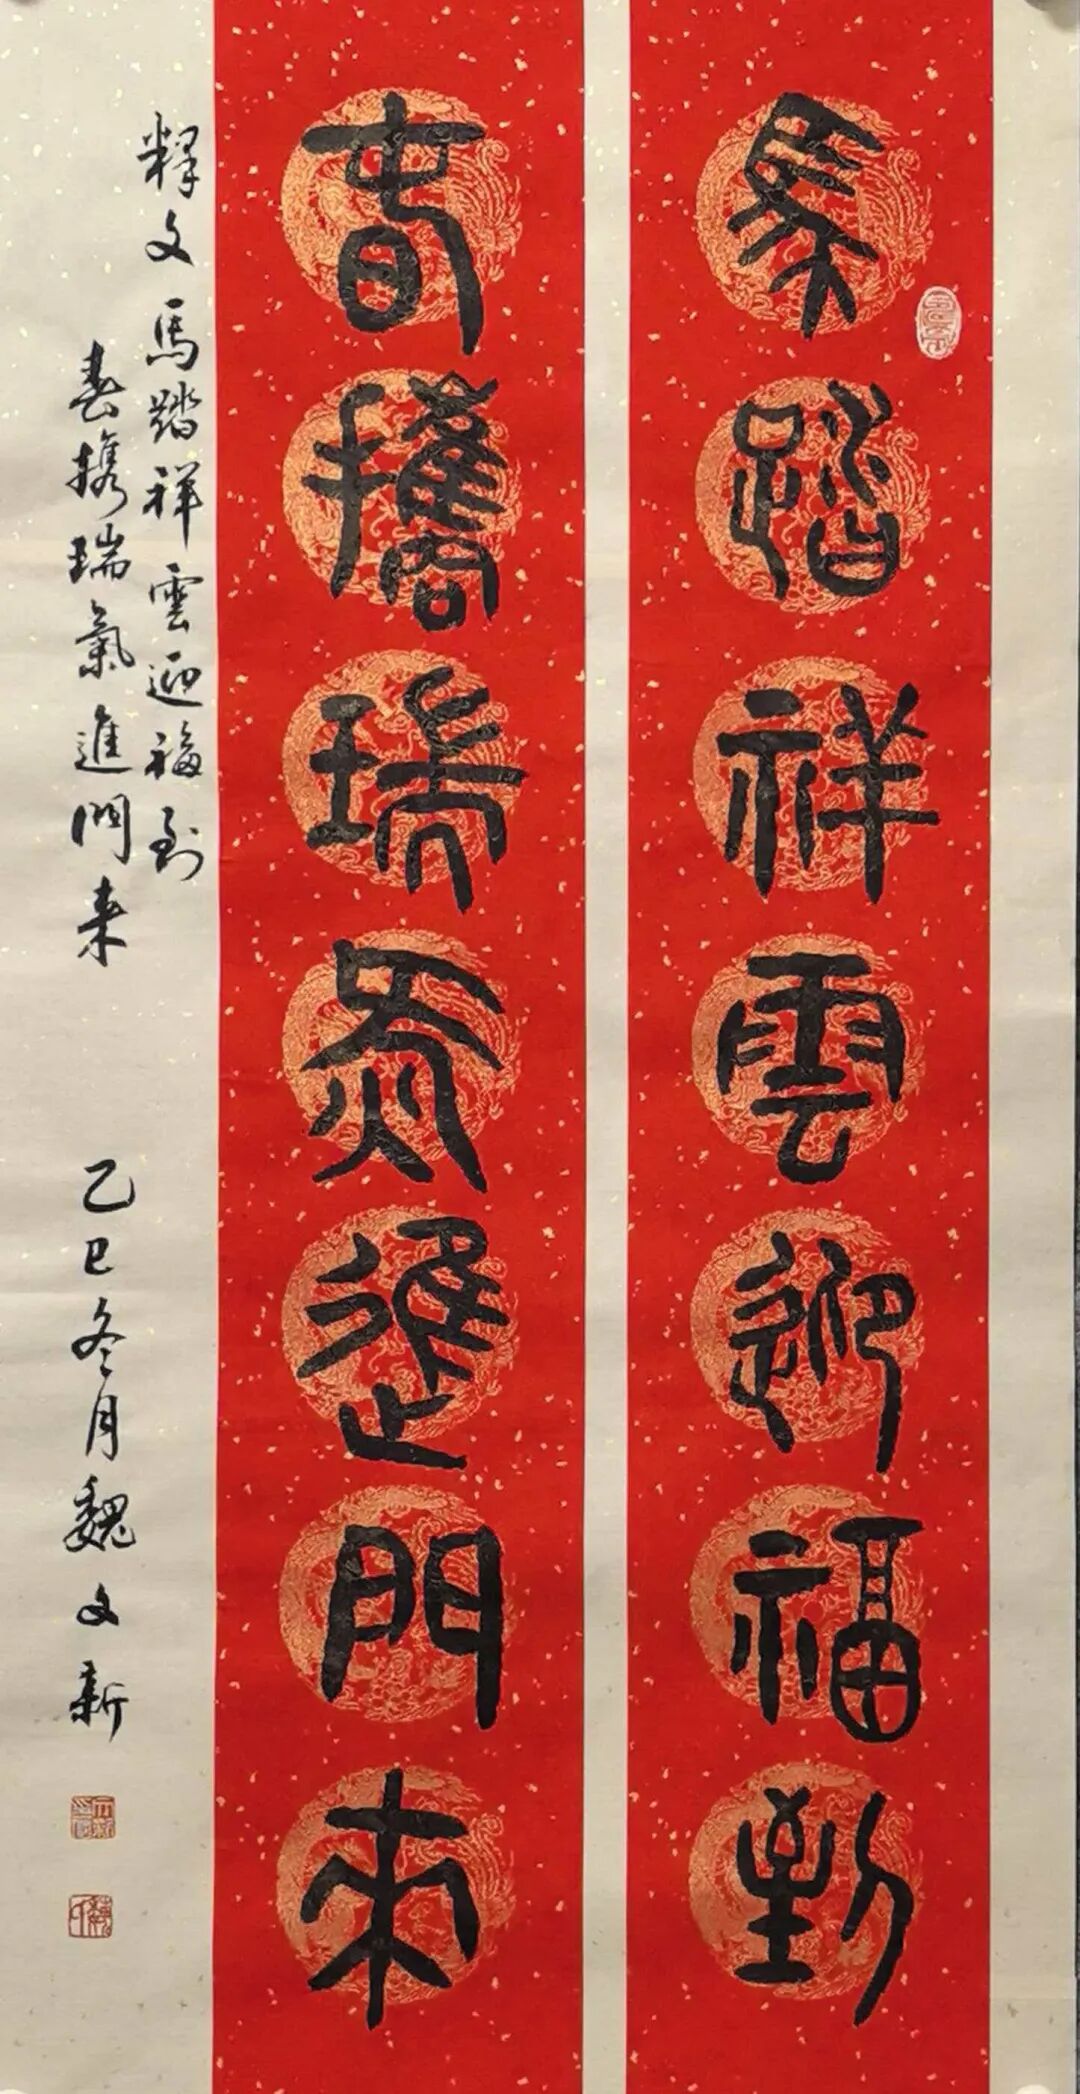 馬踏祥雲迎福到
春攜瑞氣進門來
釋文馬踏祥雲迎福到
春携瑞氣進門来
乙巳冬月魏文新